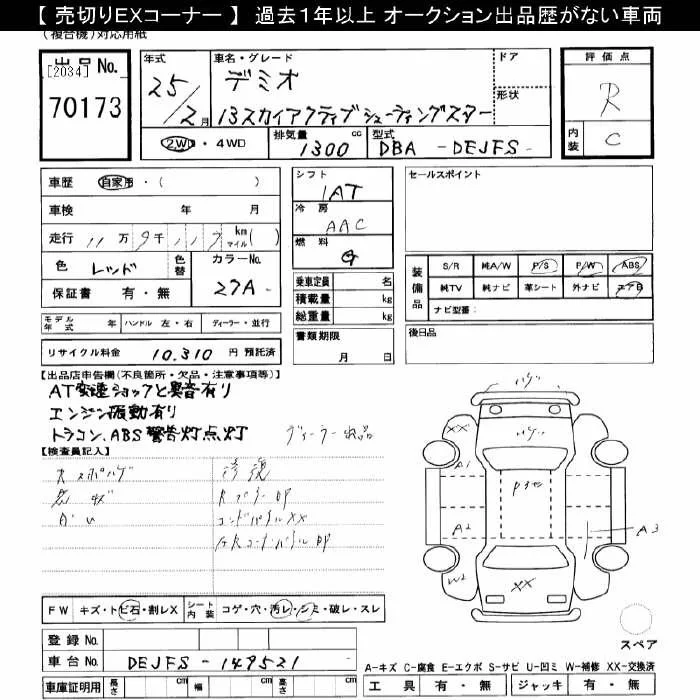 【 売切りEXコーナー 】 過去1年以上 オークション出品歴がない車両
(複合機)対応用紙
出品 No.
[2034]
70173
年式
25/2月
車名・グレード
デミオ
13スカイアクティブシューティングスター
ドア
形状
2WD・4WD
排気量 1300 cc
型式 DBA - DEJFS -
評価点
R
内装 C
車歴 自家用・( )
車検 年 月
走行 11万9千 km マイル( )
色 レッド
色替
カラーNo. 27A
保証書 有・無
シフト
IAT
冷房
AAC
燃料
G
乗車定員 名
積載量 kg
総重量 kg
書類期限
月 日
セールスポイント
装備品
S/R 純A/W P/S P/W ABS
純TV 純ナビ 革シート 外ナビ エアB
ナビ型番:
後日品
モデル年式 年 ハンドル 左・右 ディーラー・並行
リサイクル料金 10,310 円 預託済
【出品店申告欄(不良箇所・欠品・注意事項等)】
AT変速ショックと異音有り
エンジン振動有り
トラコン、ABS警告灯点灯
ディーラー出品
【検査員記入】
修復
コアパネルXX
FW キズ・トビ石・割レX シート内装 コゲ・穴・汚レ・シミ・破レ・スレ
登録 No.
車台 No. DEJFS - 149521
車庫証明用 長さ cm 幅 cm 高さ cm
ハゲ
XX
ハゲ
A1
Pヨゴレ
A2
A3
W2
XX
スペア
A-キズ C-腐食 E-エクボ S-サビ U-凹ミ W-補修 XX-交換済
工具 有・無 ジャッキ 有・無